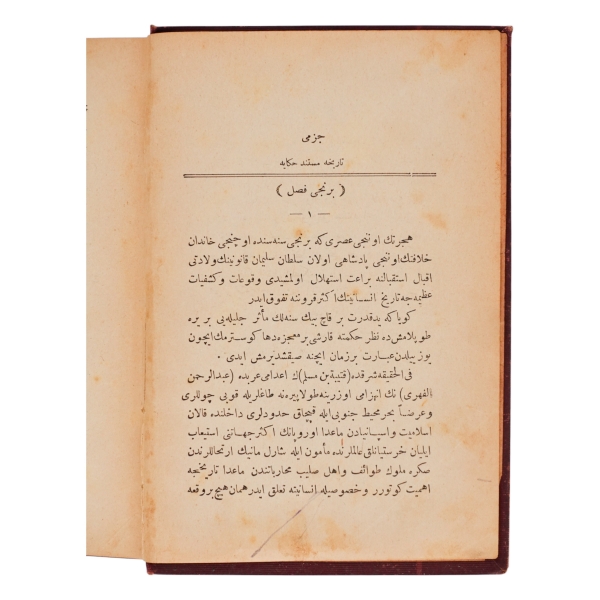 جزمی
تاریخه مستند حکایه
( برنجی فصل )
— ١ —
هجرتك اوننجی عصری که برنجی سنه سنده اوچنجی خاندان
خلافتك اوننجی پادشاهی اولان سلطان سلیمان قانونینك ولادتی
اقبال استقبالنه براعت استهلال اولمشیدی وقوعات وکشفیات
عظیمه جه تاریخ انسانیتك اکثر قروننه تفوق ایدر
کویا که ید قدرت بر قاچ بیك سنه لك مآثر جلیله یی بر یره
طوپلامش ده نظر حکمته قارشی بر معجزه دها کوسترمك ایچون
یوز ییلدن عبارت بر زمان ایچنه صیقشدیرمش ایدی .
فی الحقیقه شرقده (قتیبة بن مسلم) ك اعدامی غربده (عبدالرحمن
الفهری) نك انهزامی اوزرینه طولاپیرنه طاغلریله قوبی چوللری
وعرضاً بحر محیط جنوبی ایله قپچاق حدودلری داخلنده قالان
اسلامیت واسپانیادن ماعدا اوروپانك اکثر جهاتنی استیعاب
ایلیان خرستیانلق عالملرنده مأمون ایله شارل مانیك ارتحاللرندن
صکره ملوك طوائف واهل صلیب محارباتندن ماعدا تاریخجه
اهمیت کوتورر وخصوصیله انسانیته تعلق ایدر همان هیچ بر وقعه